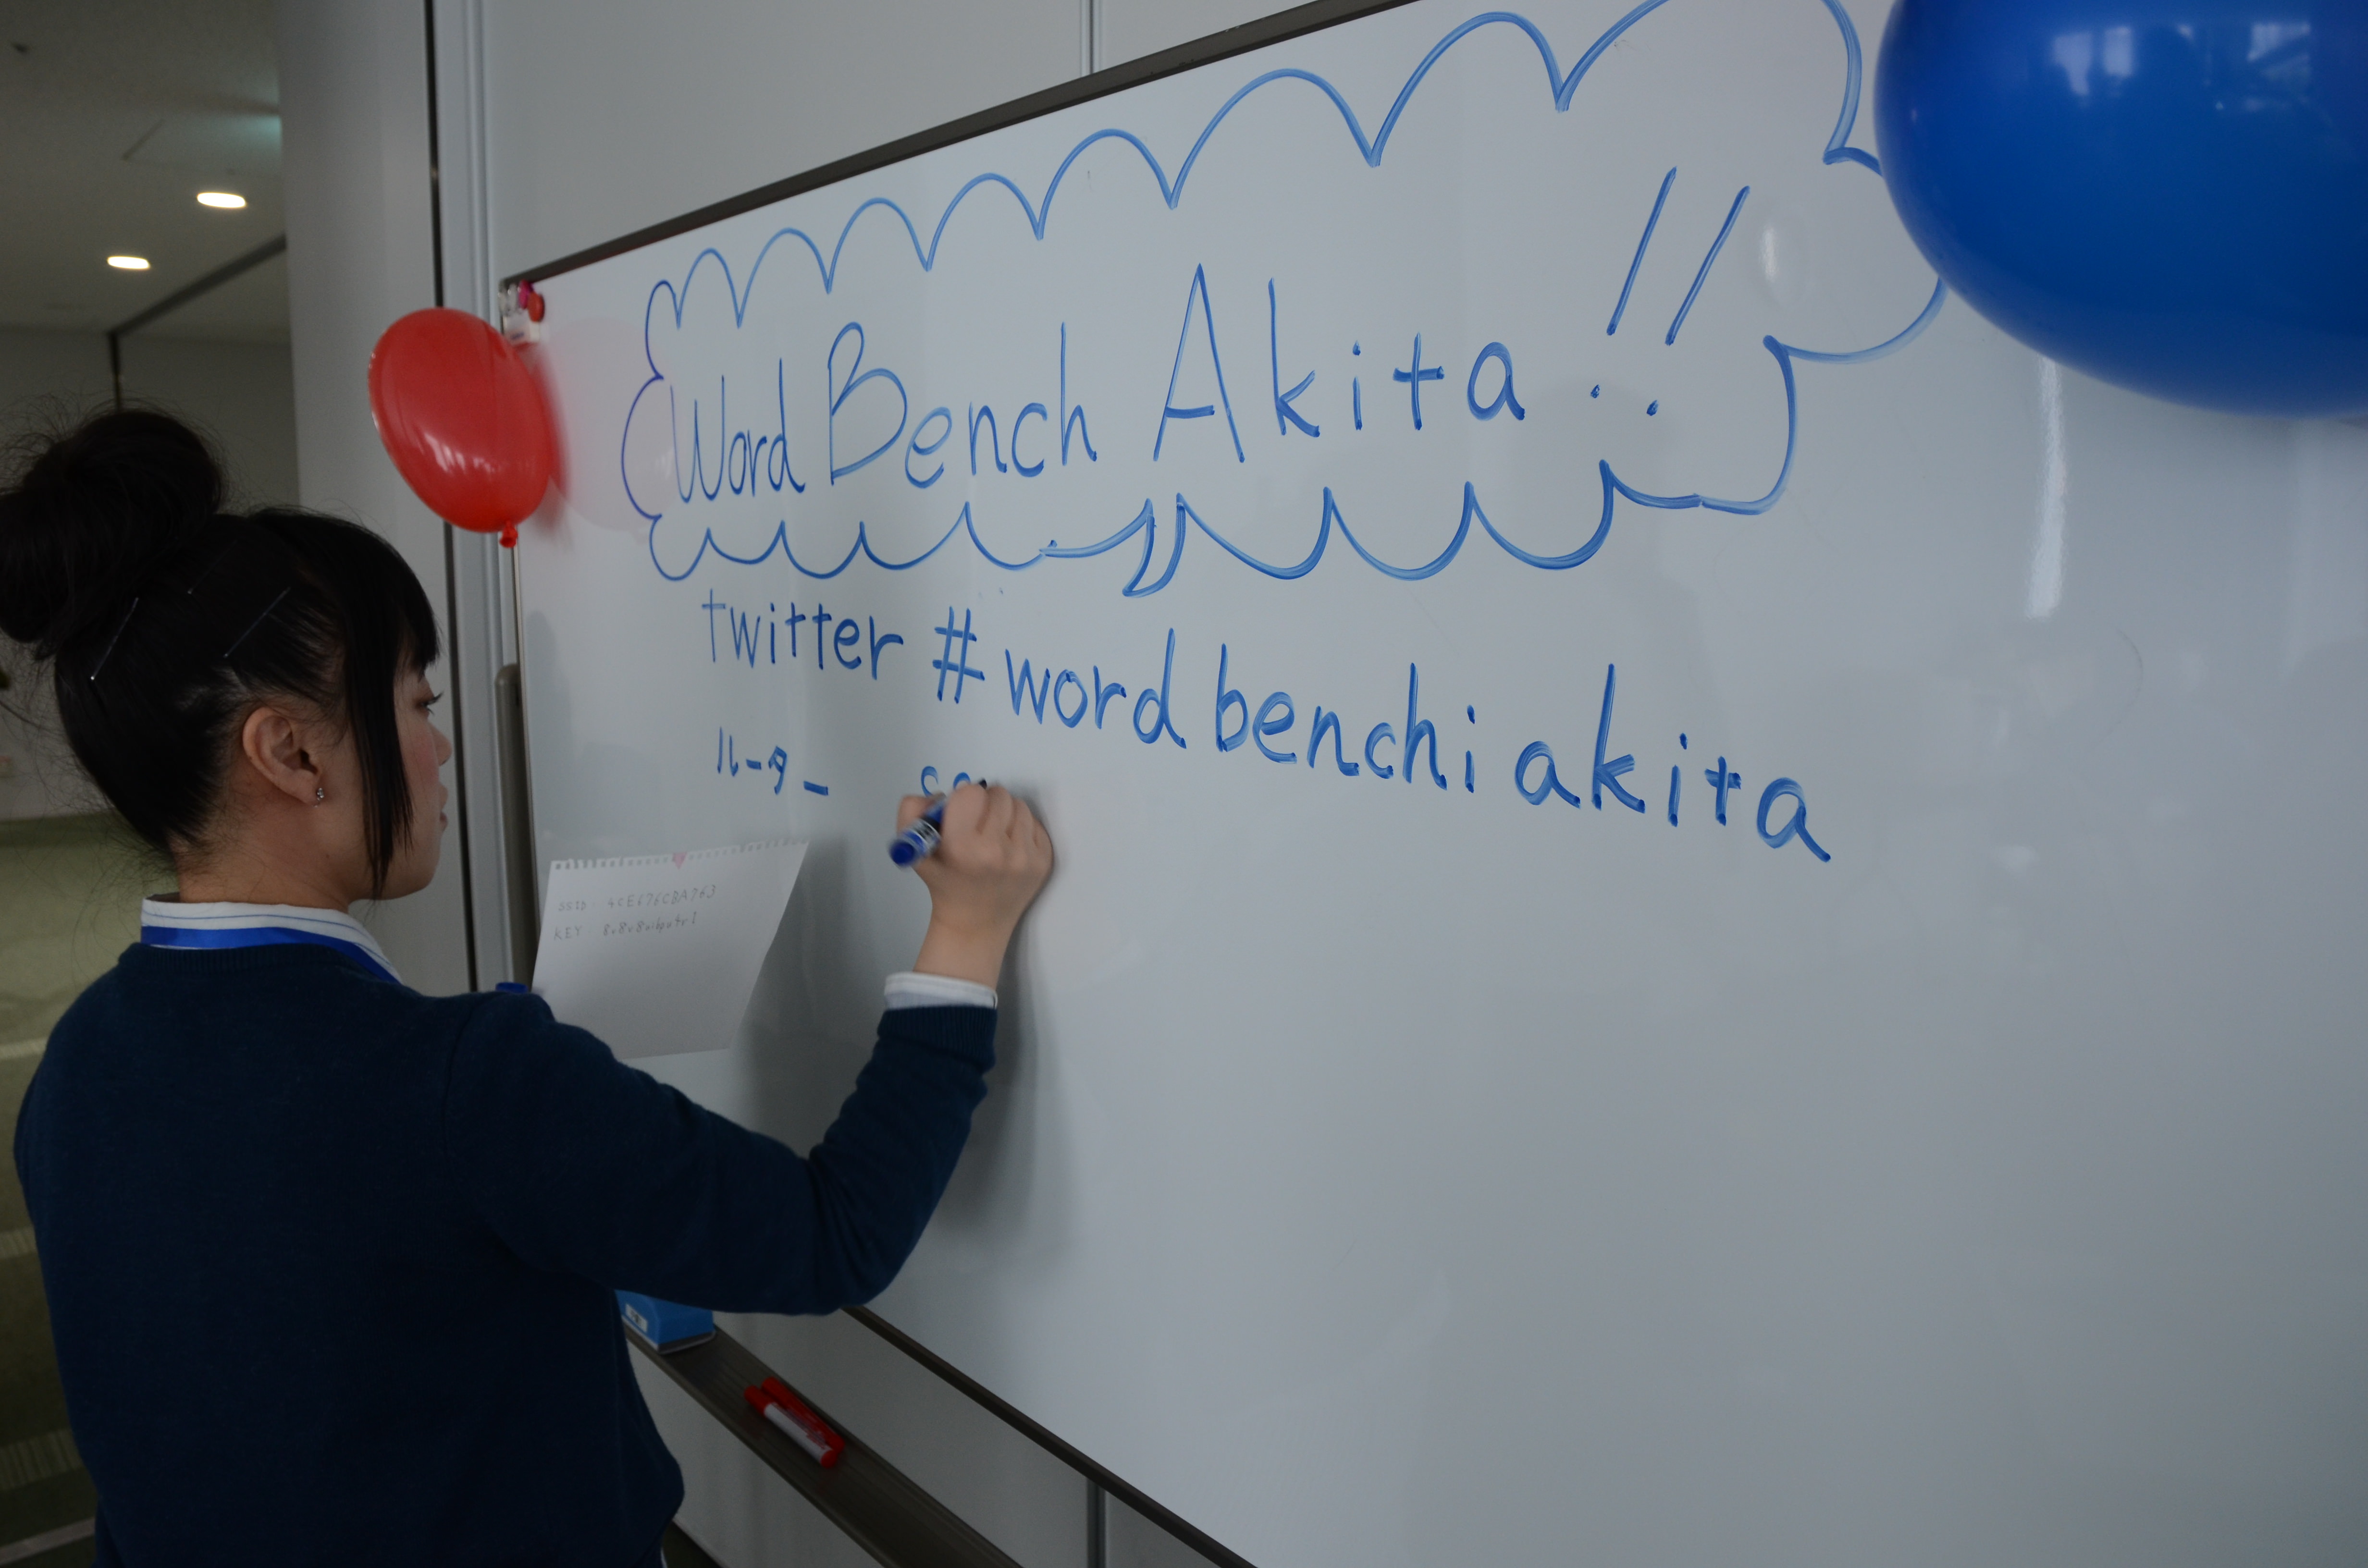 WordBench Akita !!
twitter #wordbenchiakita
ルーター
SSID 4CE676CBA763
KEY